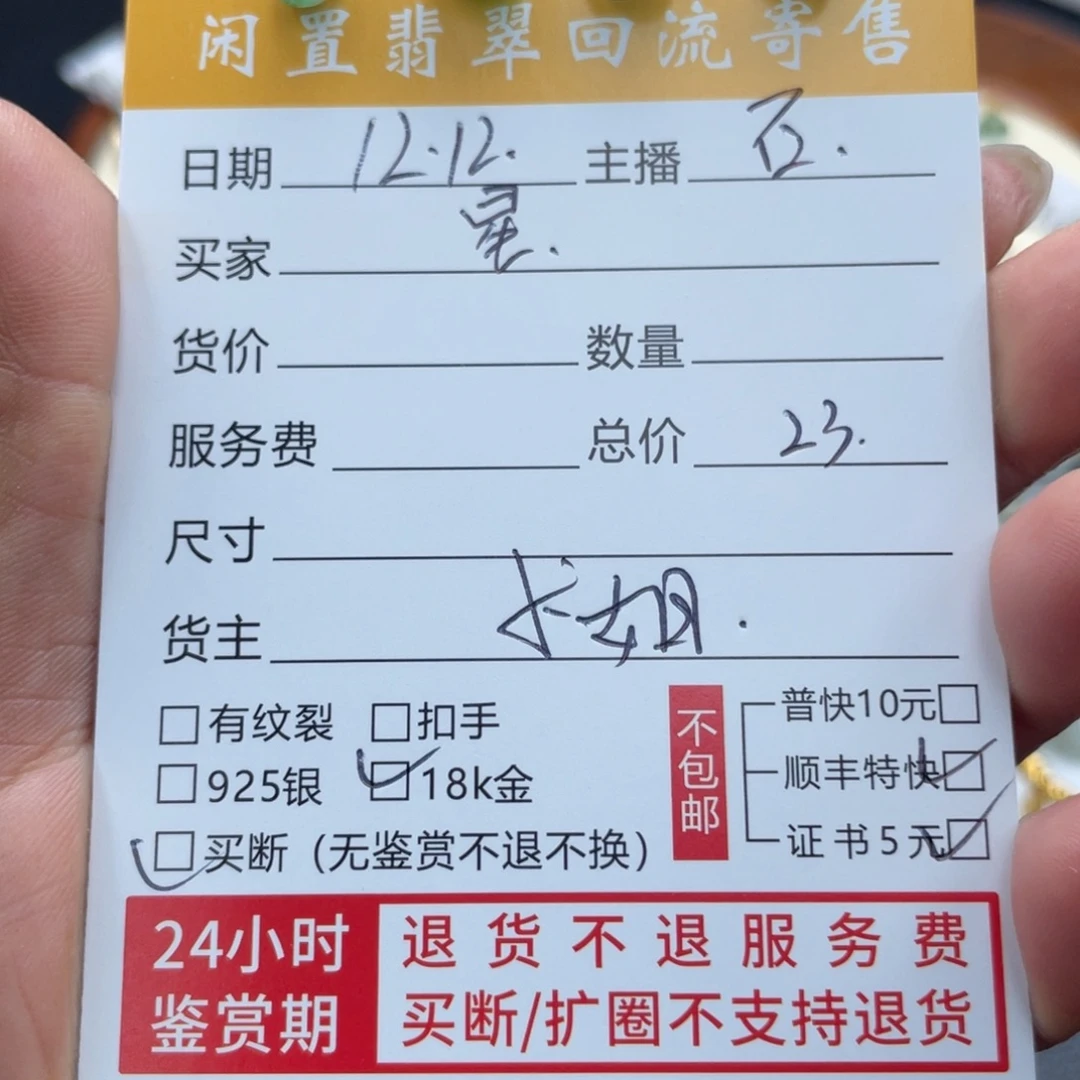 闲置翡翠回流寄售
日期 12.12. 主播
买家 星.
货价 数量
服务费 总价 23.
尺寸
货主 长姐.
有纹裂 扣手
925银 18k金
买断（无鉴赏不退不换）
不包邮
普快10元
顺丰特快
证书5元
24小时鉴赏期
退货不退服务费
买断/扩圈不支持退货